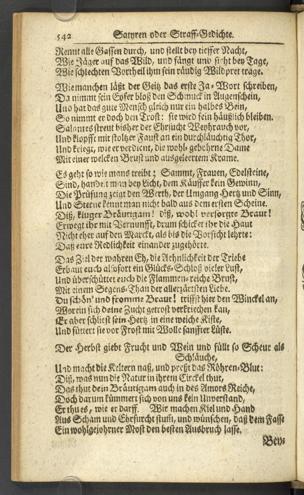 542 Satyren oder Straff-Gedichte.
Rennt alle Gassen durch, und stellt bey tieffer Nacht,
Wie Jäger auf das Wild, und fängt uns sieht bey Tage,
Wie schlechten Vortheil ihm sein räudig Wildpret trage.
Wie manchen läßt der Geitz das erste Ja-Wort schreiben,
Da nimmt sein Eyfer bloß den Schmuck in Augenschein,
Und hat das gute Mensch gleich nur ein halbes Bein,
So nimmt er doch den Trost: sie wird sein häußlich bleiben.
Salantes streut bisher der Ehrsucht Weyhrauch vor,
Und klopfft mit stoltzer Faust an ein durchläuchtig Thor,
Und kriegt, wie er verdient, die wohl gebohrne Dame
Mit einer welcken Brust und ausgeleertem Krame.
Es geht so wie mans treibt; Sammt, Frauen, Edelsteine,
Sind, handelt man bey Licht, dem Käuffer kein Gewinn,
Die Prüfung zeigt den Werth, der Umgang Hertz und Sinn,
Und Sterne kennt man nicht bald aus dem ersten Scheine.
Diß, kluger Bräutigam! diß, wohl versorgte Braut!
Erwegt ihr mit Vernunfft, drum schickt ihr die Haut
Nicht eher auf den Marckt, als bis die Vorsicht lehrte:
Daß eure Redlichkeit einander zugehörte.
Das Ziel der wahren Eh, die Aehnlichkeit der Triebe
Erbaut euch alsofort ein Glücks-Schloß vieler Lust,
Und überschüttet euch die Flammen-reiche Brust,
Mit einem Segens-Thau der allerzärtsten Liebe.
Du schön' und fromme Braut! triffst hier den Winckel an,
Worein sich deine Zucht getrost verkriechen kan,
Er aber schliest sein Hertz in eine weiche Kiste,
Und füttert sie vor Frost mit Wolle sanffter Lüste.
Der Herbst giebt Frucht und Wein und füllt so Scheur als
Schläuche,
Und macht die Keltern naß, und preßt das Röhren-Blut:
Diß, was nun die Natur in ihrem Circkel thut,
Das thut dein Bräutigam auch in des Amors Reiche,
Doch darum kümmert sich von uns kein Unverstand,
Er thu es, wie er darff. Wir machen Kiel und Hand
Aus Scham und Ehrfurcht stumm, und wünschen, daß dem Fasse
Ein wohlgejohrner Most den besten Ausbruch lasse.
Bey-